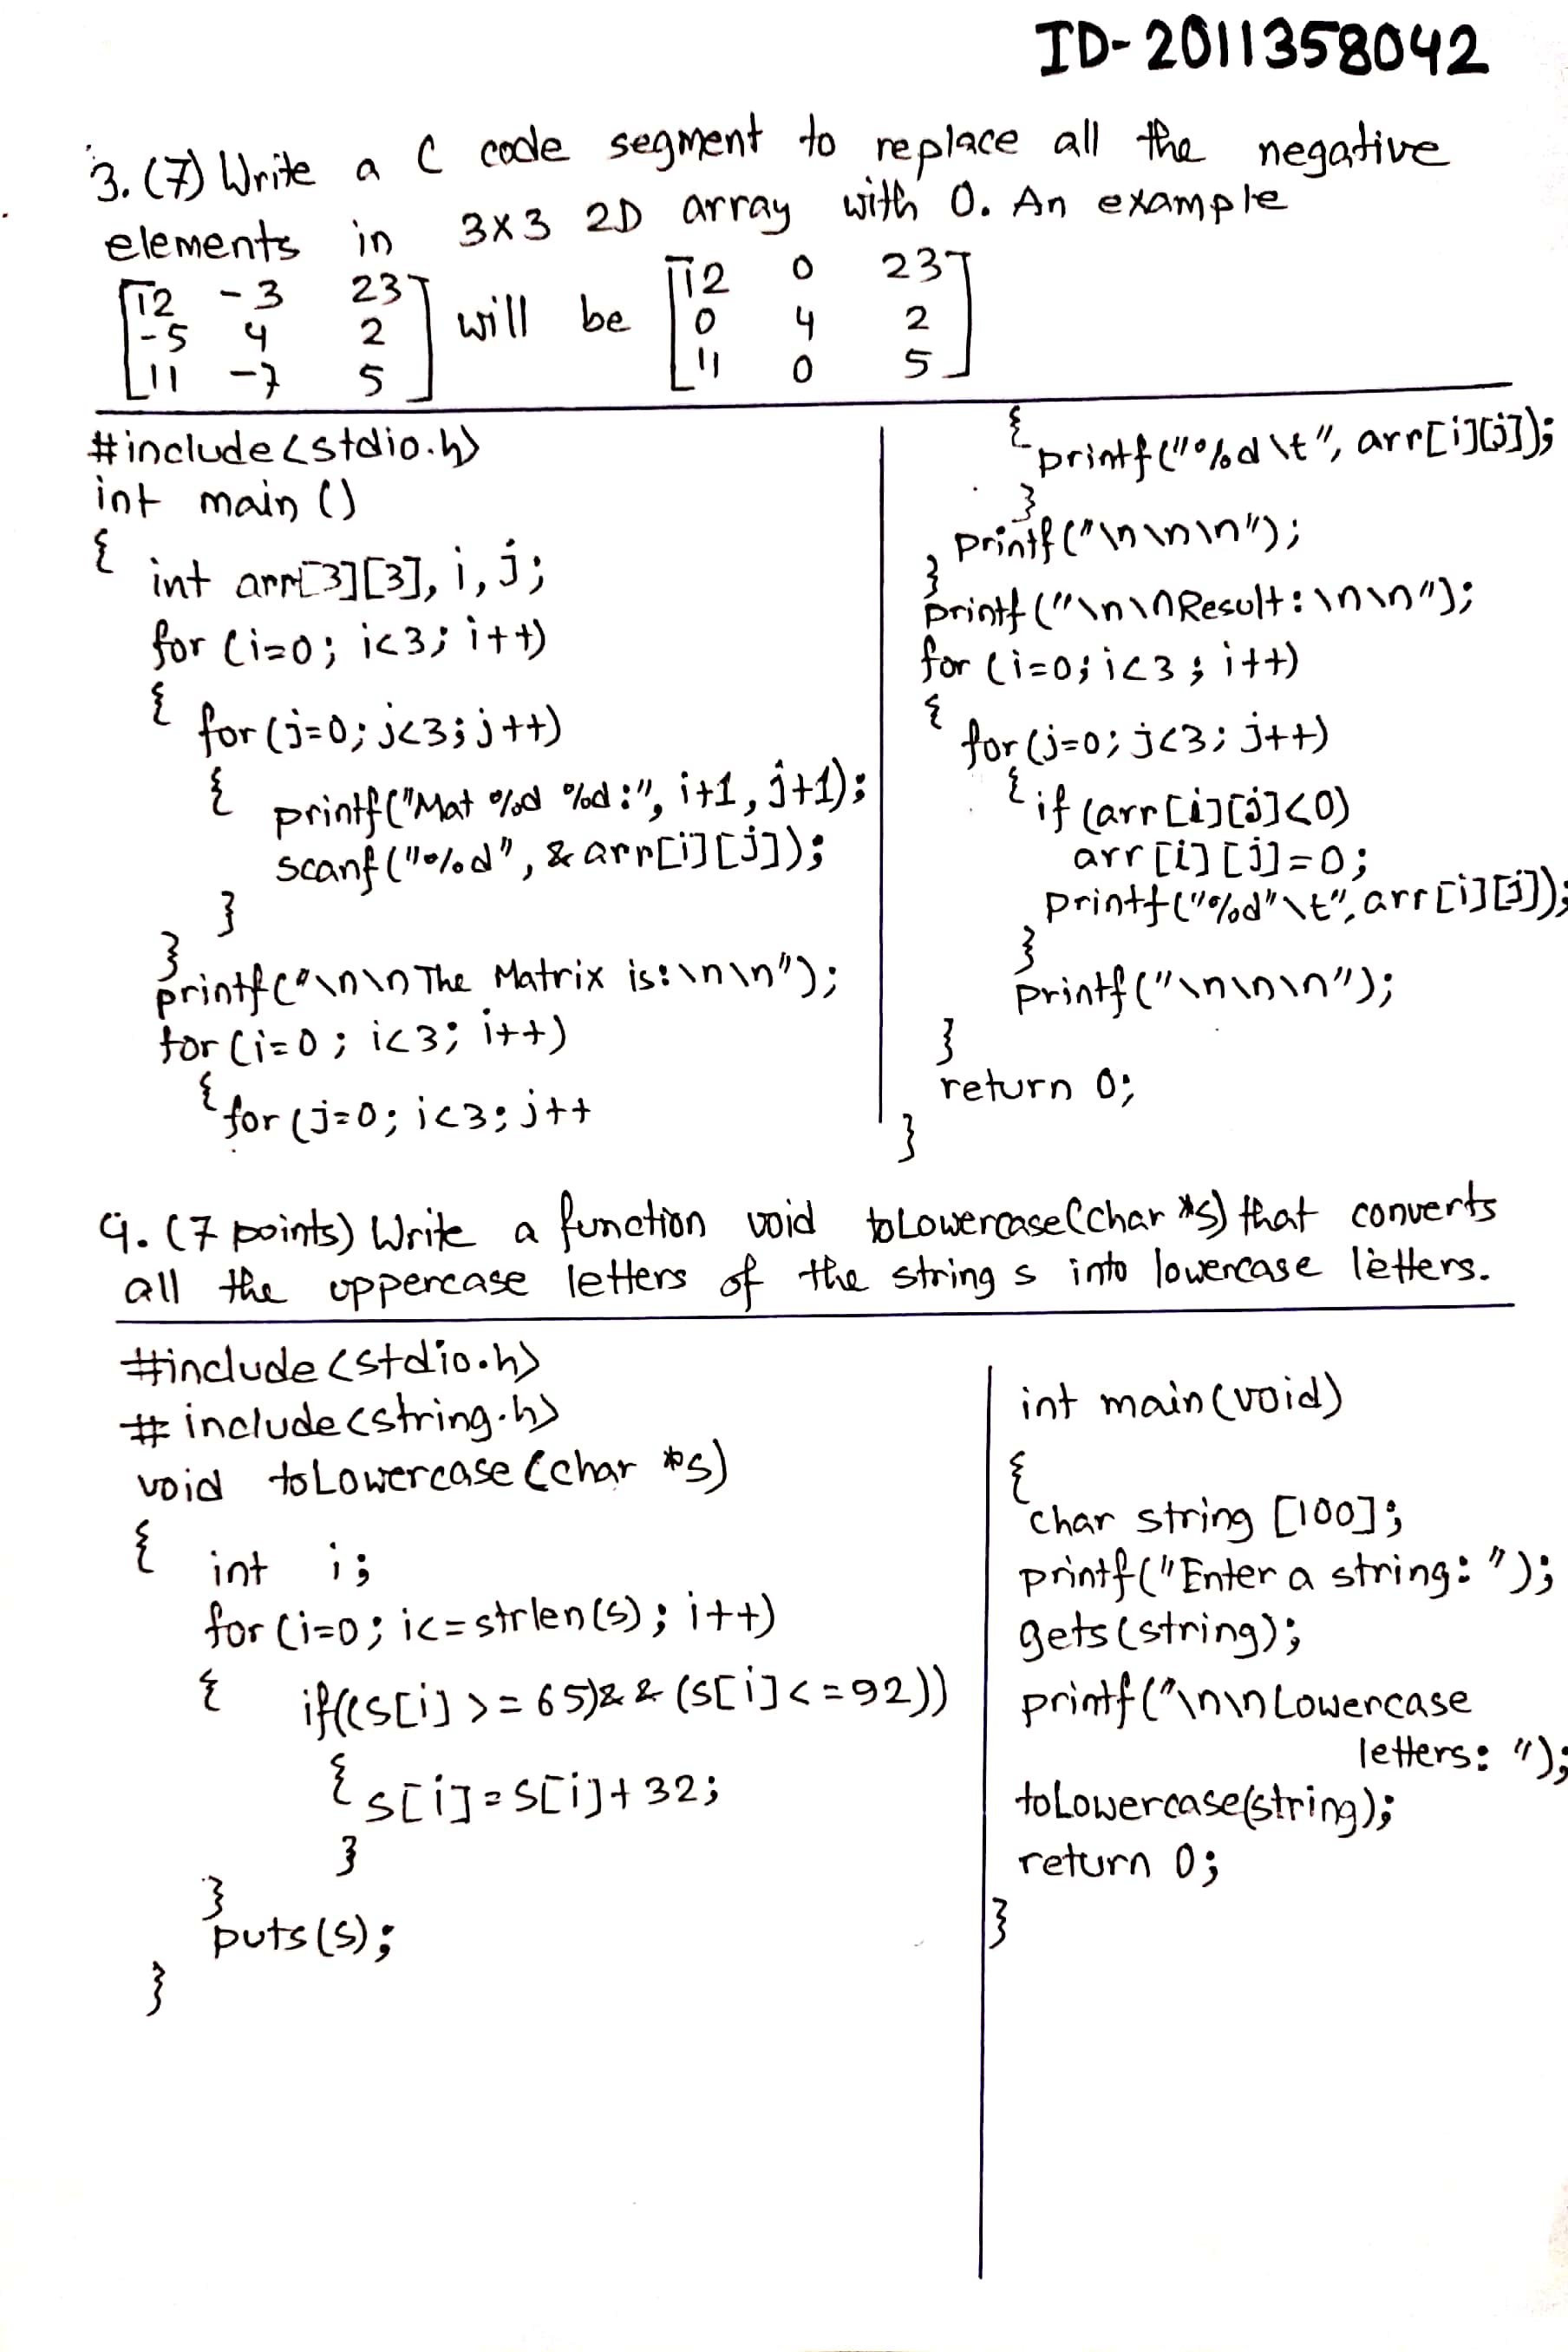 ID-2011358042
3. (7) Write a C code segment to replace all the negative
elements in 3x3 2D array with 0. An example
[12 -3 23
-5 4 2
11 -7 5] will be [12 0 23
0 4 2
11 0 5]
#include<stdio.h>
int main ()
{
int arr[3][3], i, j;
for (i=0; i<3; i++)
{
for (j=0; j<3; j++)
{
printf("Mat %d %d:", i+1, j+1);
scanf("%d", &arr[i][j]);
}
}
printf("\n\nThe Matrix is:\n\n");
for (i=0; i<3; i++)
{
for (j=0; i<3; j++
{
printf("%d\t", arr[i][j]);
}
printf("\n\n\n");
}
printf("\n\nResult:\n\n");
for (i=0; i<3; i++)
{
for (j=0; j<3; j++)
{ if (arr[i][j]<0)
arr[i][j]=0;
printf("%d"\t", arr[i][j]);
}
printf("\n\n\n");
}
return 0;
}
4. (7 points) Write a function void toLowercase(char *s) that converts
all the uppercase letters of the string s into lowercase letters.
#include<stdio.h>
#include<string.h>
void toLowercase (char *s)
{
int i;
for (i=0; i<=strlen(s); i++)
{ if((s[i]>=65)&&(s[i]<=92))
{
s[i]=s[i]+32;
}
}
puts(s);
}
int main(void)
{
char string [100];
printf("Enter a string: ");
gets(string);
printf("\n\nLowercase
letters: ");
toLowercase(string);
return 0;
}